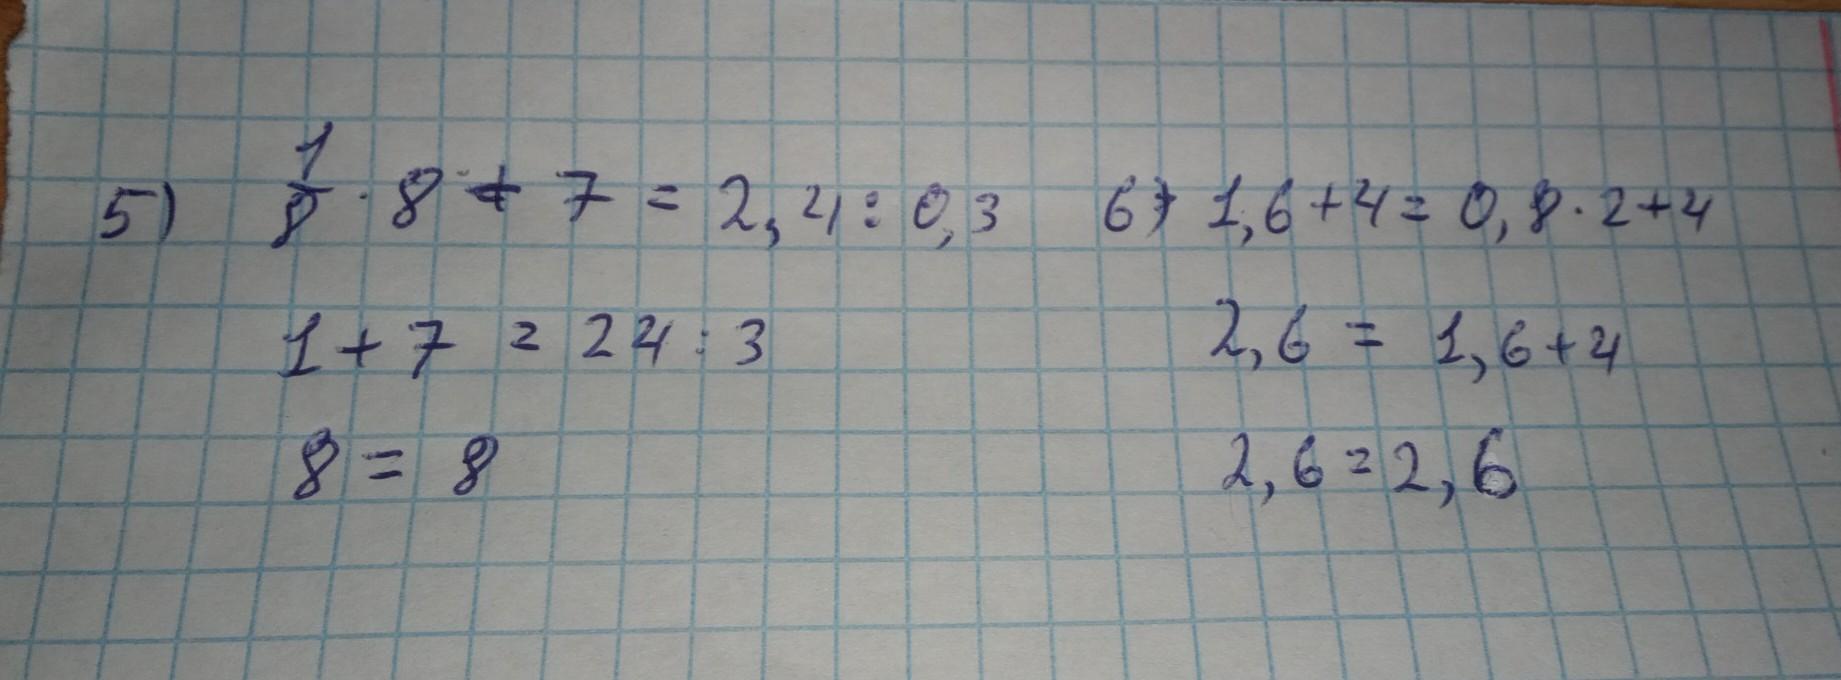 5) 1/8 · 8 + 7 = 2,4 : 0,3
1 + 7 = 24 : 3
8 = 8
6) 1,6 + 4 = 0,8 · 2 + 4
2,6 = 1,6 + 4
2,6 = 2,6